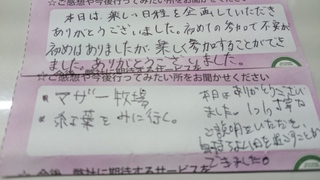 ☆ご感想や今後行ってみたい所をお聞かせください
本日は、楽しい日程を企画していただき
ありがとうございました。初めての参加で不安が
初めはありましたが、楽しく参加することができ
ました。ありがとうございました。
☆ご感想や今後行ってみたい所をお聞かせください
・マザー牧場
・紅葉をみに行く。
本日はありがとうござい
ました。
ご説明をいただき、
過ごすことが
できました。
☆今後、弊社に期待するサービスは